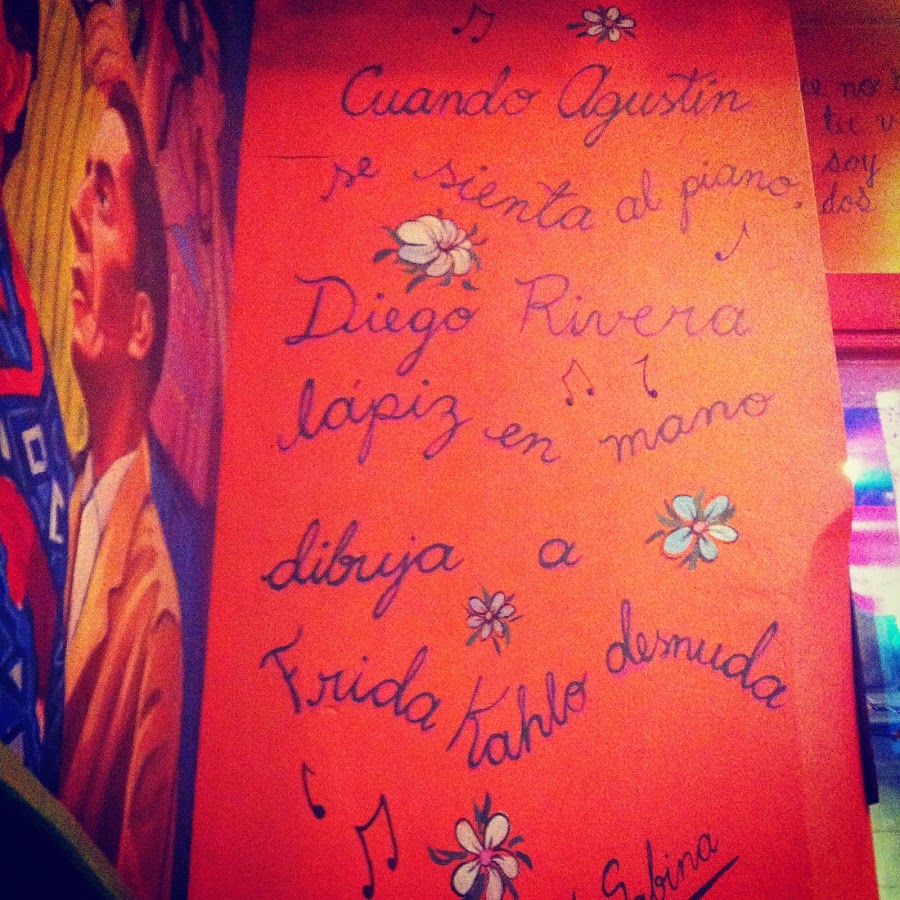 Cuando Agustín
se sienta al piano,
Diego Rivera
lápiz en mano
dibuja a
Frida Kahlo desmuda
Sabina
no
tu v
soy
dos